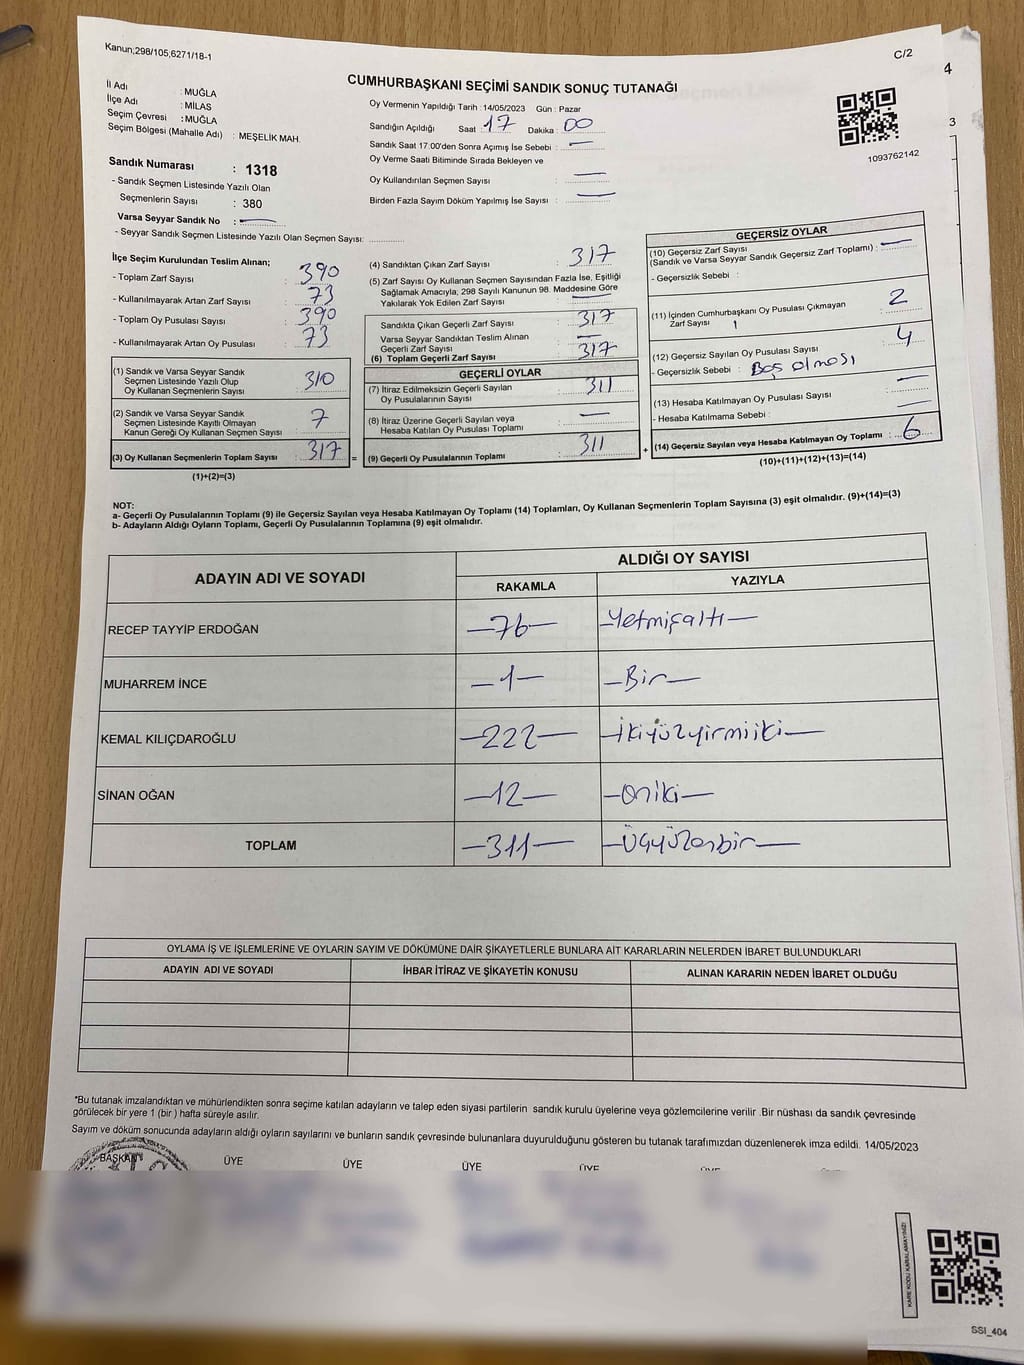 Kanun;298/105,6271/18-1
C/2
4
3
CUMHURBAŞKANI SEÇİMİ SANDIK SONUÇ TUTANAĞI
İl Adı : MUĞLA
İlçe Adı : MİLAS
Seçim Çevresi : MUĞLA
Seçim Bölgesi (Mahalle Adı) : MEŞELİK MAH.
Sandık Numarası : 1318
- Sandık Seçmen Listesinde Yazılı Olan
Seçmenlerin Sayısı : 380
Varsa Seyyar Sandık No : —
- Seyyar Sandık Seçmen Listesinde Yazılı Olan Seçmen Sayısı: ..............
Oy Vermenin Yapıldığı Tarih : 14/05/2023 Gün : Pazar
Sandığın Açıldığı Saat : 17 Dakika : 00
Sandık Saat 17:00'den Sonra Açımış İse Sebebi : —
Oy Verme Saati Bitiminde Sırada Bekleyen ve
Oy Kullandırılan Seçmen Sayısı : —
Birden Fazla Sayım Döküm Yapılmış İse Sayısı : —
1093762142
İlçe Seçim Kurulundan Teslim Alınan;
- Toplam Zarf Sayısı : 390
- Kullanılmayarak Artan Zarf Sayısı : 73
- Toplam Oy Pusulası Sayısı : 390
- Kullanılmayarak Artan Oy Pusulası : 73
(1) Sandık ve Varsa Seyyar Sandık
Seçmen Listesinde Yazılı Olup
Oy Kullanan Seçmenlerin Sayısı : 310
(2) Sandık ve Varsa Seyyar Sandık
Seçmen Listesinde Kayıtlı Olmayan
Kanun Gereği Oy Kullanan Seçmen Sayısı : 7
(3) Oy Kullanan Seçmenlerin Toplam Sayısı : 317 =
(1)+(2)=(3)
(4) Sandıktan Çıkan Zarf Sayısı : 317
(5) Zarf Sayısı Oy Kullanan Seçmen Sayısından Fazla İse, Eşitliği
Sağlamak Amacıyla, 298 Sayılı Kanunun 98. Maddesine Göre
Yakılarak Yok Edilen Zarf Sayısı : —
Sandıkta Çıkan Geçerli Zarf Sayısı : 317
Varsa Seyyar Sandıktan Teslim Alınan
Geçerli Zarf Sayısı : —
(6) Toplam Geçerli Zarf Sayısı : 317
GEÇERLİ OYLAR
(7) İtiraz Edilmeksizin Geçerli Sayılan
Oy Pusulalarının Sayısı : 311
(8) İtiraz Üzerine Geçerli Sayılan veya
Hesaba Katılan Oy Pusulası Toplamı : —
(9) Geçerli Oy Pusulalarının Toplamı : 311 +
GEÇERSİZ OYLAR
(10) Geçersiz Zarf Sayısı
(Sandık ve Varsa Seyyar Sandık Geçersiz Zarf Toplamı) : —
- Geçersizlik Sebebi :
(11) İçinden Cumhurbaşkanı Oy Pusulası Çıkmayan
Zarf Sayısı : 2
(12) Geçersiz Sayılan Oy Pusulası Sayısı : 4
- Geçersizlik Sebebi : Boş olması
(13) Hesaba Katılmayan Oy Pusulası Sayısı : —
- Hesaba Katılmama Sebebi : —
(14) Geçersiz Sayılan veya Hesaba Katılmayan Oy Toplamı : 6
(10)+(11)+(12)+(13)=(14)
NOT:
a- Geçerli Oy Pusulalarının Toplamı (9) ile Geçersiz Sayılan veya Hesaba Katılmayan Oy Toplamı (14) Toplamları, Oy Kullanan Seçmenlerin Toplam Sayısına (3) eşit olmalıdır. (9)+(14)=(3)
b- Adayların Aldığı Oyların Toplamı, Geçerli Oy Pusulalarının Toplamına (9) eşit olmalıdır.
ADAYIN ADI VE SOYADI
ALDIĞI OY SAYISI
RAKAMLA YAZIYLA
RECEP TAYYİP ERDOĞAN —76— —Yetmişaltı—
MUHARREM İNCE —1— —Bir—
KEMAL KILIÇDAROĞLU —222— —İkiyüzyirmiiki—
SİNAN OĞAN —12— —Oniki—
TOPLAM —311— —Üçyüzonbir—
OYLAMA İŞ VE İŞLEMLERİNE VE OYLARIN SAYIM VE DÖKÜMÜNE DAİR ŞİKAYETLERLE BUNLARA AİT KARARLARIN NELERDEN İBARET BULUNDUKLARI
ADAYIN ADI VE SOYADI İHBAR İTİRAZ VE ŞİKAYETİN KONUSU ALINAN KARARIN NEDEN İBARET OLDUĞU
*Bu tutanak imzalandıktan ve mühürlendikten sonra seçime katılan adayların ve talep eden siyasi partilerin sandık kurulu üyelerine veya gözlemcilerine verilir .Bir nüshası da sandık çevresinde
görülecek bir yere 1 (bir ) hafta süreyle asılır.
Sayım ve döküm sonucunda adayların aldığı oyların sayılarını ve bunların sandık çevresinde bulunanlara duyurulduğunu gösteren bu tutanak tarafımızdan düzenlenerek imza edildi. 14/05/2023
BAŞKAN ÜYE ÜYE ÜYE ÜYE ÜYE
KARE KODU KARALAMAYINIZ!
SSI_404